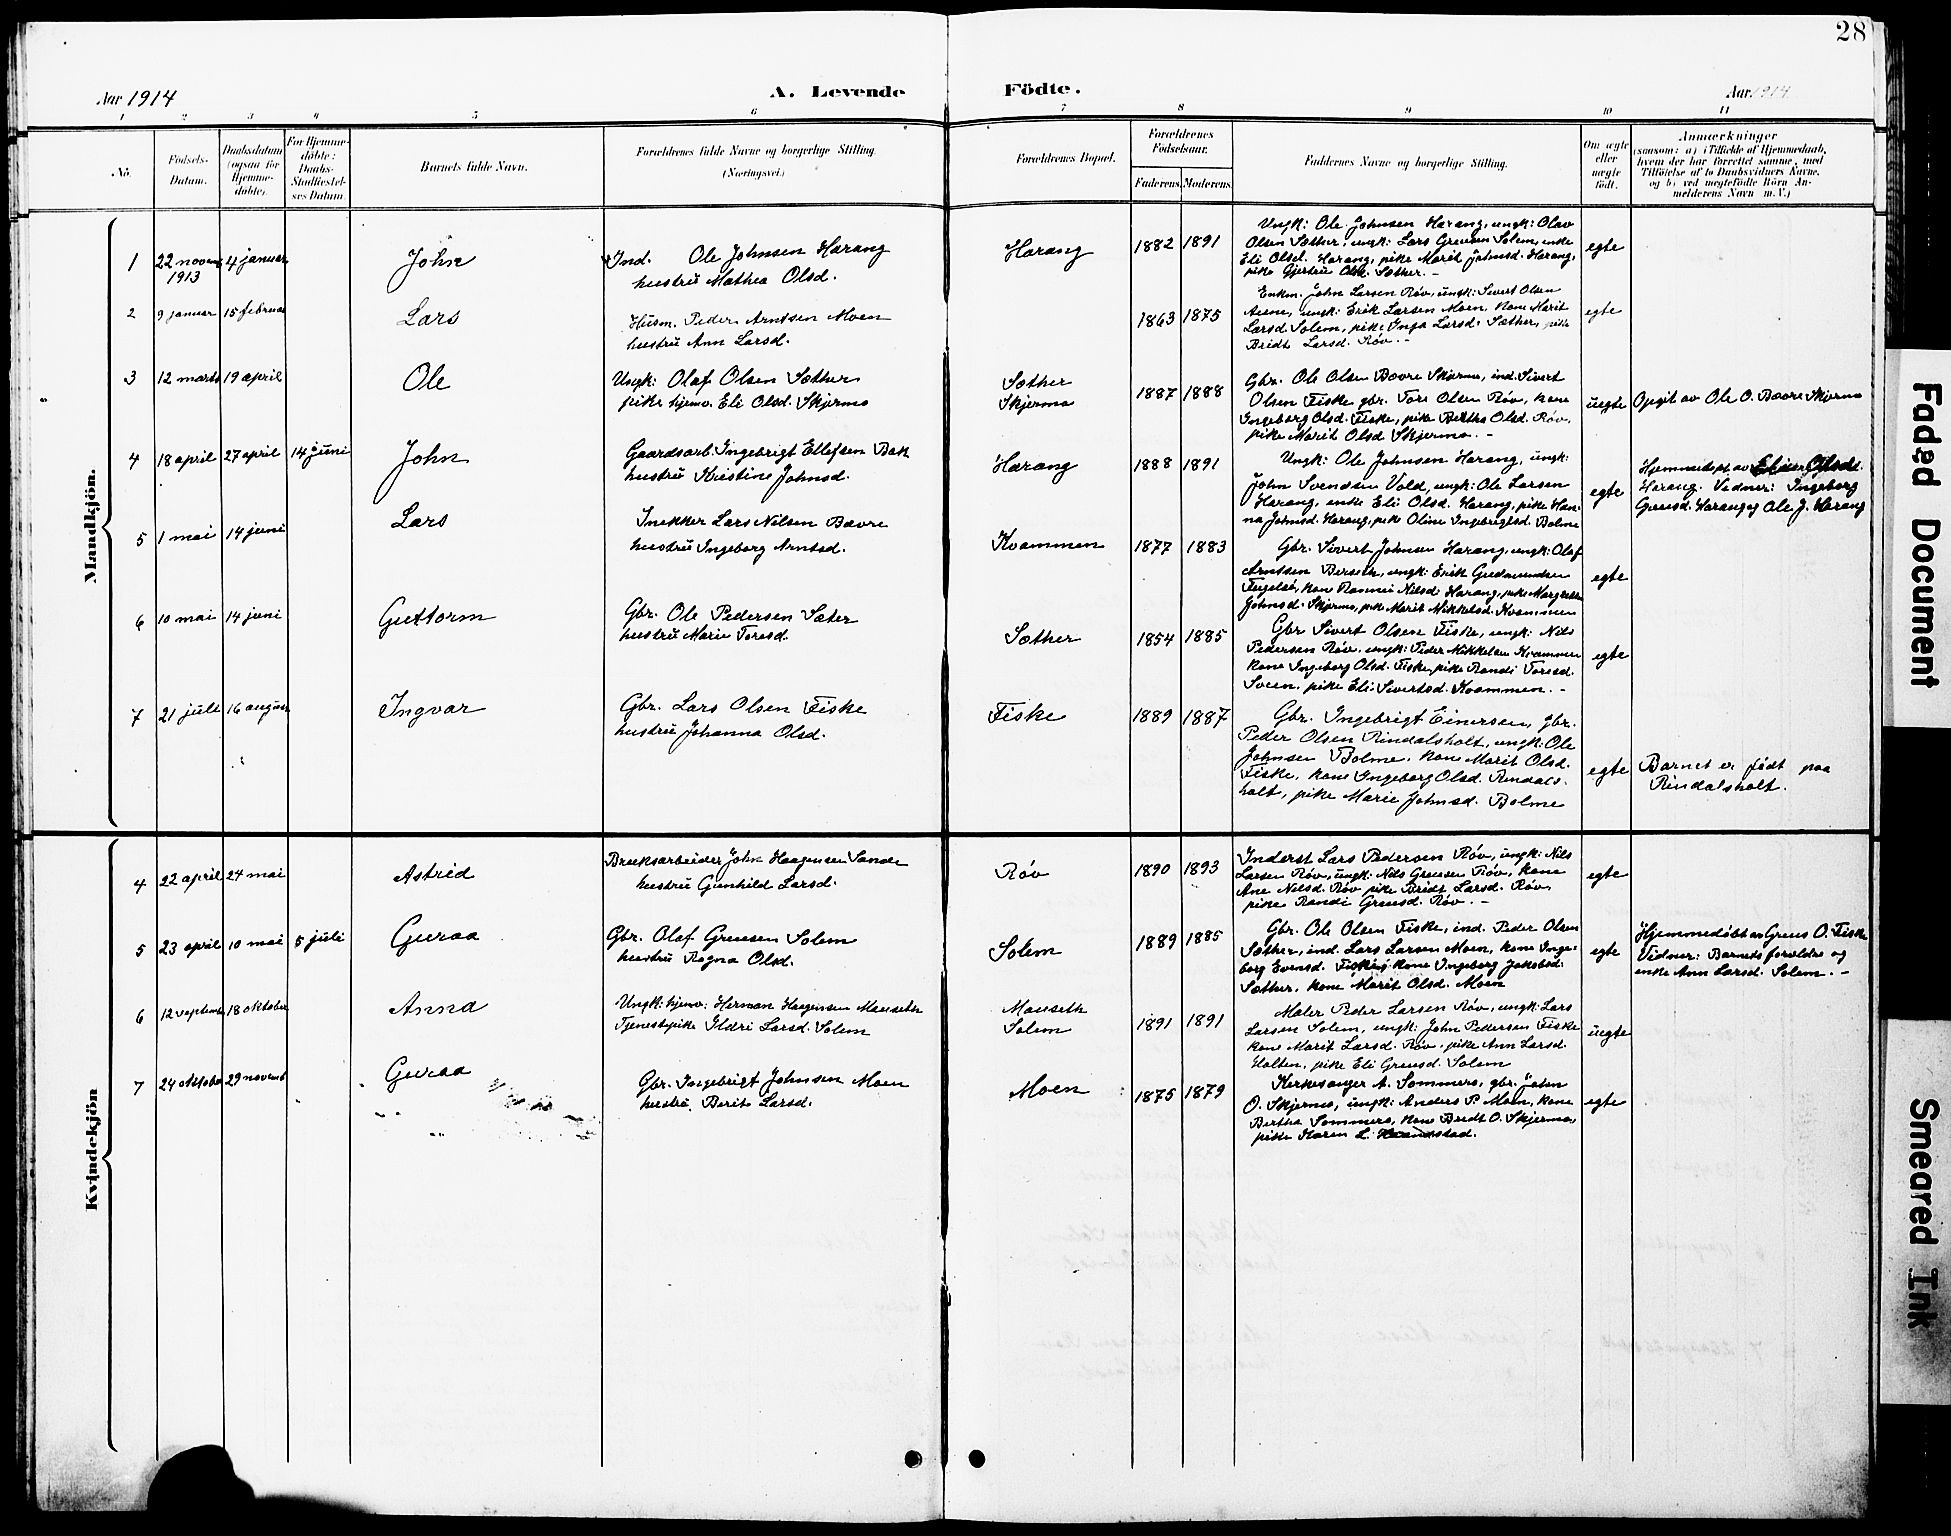 28
Aar 1914
A. Levende
Födte.
Aar 1914
1 2 3 4 5 6 7 8 9 10 11
No.
Födsels-
Datum.
Daabsdatum
(ogsaa for
Hjemme-
døbte).
For Hjemme-
døbte:
Daabs-
Stadfæstel-
ses Datum.
Barnets fulde Navn.
Forældrenes fulde Navne og borgerlige Stilling.
(Næringsvei.)
Forældrenes Bopæl.
Forældrenes
Födselsaar.
Faderens. Moderens.
Faddernes Navne og borgerlige Stilling.
Om ægte
eller
uægte
födt.
Anmærkninger
(saasom: a) i Tilfælde af Hjemmedaab,
hvem der har forrettet samme, med
Tilföielse af to Daabsvidners Navne,
og b) ved uegtefödte Börn An-
melderens Navn m. V.)
Mandkjön.
1 22 novem 4 januar John Ind. Ole Johnsen Harang Harang 1882 1891 egte
1913 hustru Mathea Olsd.
Ungk: Ole Johnsen Harang, ungk: Olav
Olsen Sæther, ungk: Lars Gruesen Solem, enke
Eli Olsd. Harang, pike Marit Johnsd. Harang,
pike Gjertru Olsd. Sæther. -
2 9 januar 15 februar Lars Husm. Peder Arntsen Moen 1863 1875 egte
hustru Ann Larsd.
Enkm. John Larsen Røv, ungk: Sivert Olsen
Aune, ungk: Erik Larsen Moen, kone Marit
Larsd Solem, pike Inga Larsd. Sæther, pike
Bridt Larsd. Røv. -
3 12 marts 19 april Ole Ungk: Olaf Olsen Sæther Sæther 1887 1888 uegte Opgit av Ole O. Bævre Skjermo
pike hjemv. Eli Olsd. Skjermo Skjermo
Gbr. Ole Olsen Bævre Skjermo, ind. Sivert
Olsen Fiske gbr. Tore Olsen Røv, kone
Ingeborg Olsd. Fiske, pike Bertha Olsd. Røv,
pike Marit Olsd Skjermo. -
4 18 april 27 april 14 juni John Gaardsarb. Ingebrigt Ellefsen Bak Harang 1888 1891 egte
hustru Kristine Johnsd.
Ungk: Ole Johnsen Harang, ungk:
John Svendsen Vold, ungk: Ole Larsen
Harang, enke Eli Olsd. Harang, pike Han-
na Johnsd. Harang, pike Oline Ingebrigtsd. Bolme
Hjemmedøpt av Eli Olsd.
Harang. Vidner: Ingeborg
Gruesd. Harang og Ole J. Harang
5 1 mai 14 juni Lars Snekker Lars Nilsen Bævre Kvammen 1877 1883 egte
hustru Ingeborg Arntsd.
Gbr. Sivert Johnsen Harang, ungk: Olaf
Arntsen Berseth, ungk: Erik Gudmundsen
Fugelsø, kone Rannei Nilsd. Harang, pike Margrethe
Johnsd. Skjermo, pike Marit Mikkelsd. Kvammen
6 10 mai 14 juni Guttorm Gbr. Ole Pedersen Sæter Sæther 1854 1885 egte
hustru Marie Toresd.
Gbr Sivert Olsen Fiske, ungk: Nils
Pedersen Røv, ungk: Peder Mikkelsen Kvammen
kone Ingeborg Olsd. Fiske, pike Randi Toresd.
Sveen, pike Eli Sivertsd. Kvammen. -
7 21 juli 16 august Ingvar Gbr. Lars Olsen Fiske Fiske 1889 1887 egte
hustru Johanna Olsd.
Gbr. Ingebrigt Einersen, gbr.
Peder Olsen Rindalsholt, ungk: Ole
Johnsen Bolme, kone Marit Olsd.
Fiske, kone Ingeborg Olsd. Rindals-
holt, pike Marie Johnsd. Bolme
Barnet er født paa
Rindalsholt.
Kvindekjön
4 22 april 24 mai Astrid Bruksarbeider John Haagensen Sande Røv 1890 1893 egte
hustru Gunhild Larsd.
Inderst Lars Pedersen Røv, ungk: Nils
Larsen Røv, ungk: Nils Gruesen Røv, kone
Ane Nilsd. Røv pike Bridt Larsd. Røv,
pike Randi Gruesd. Røv. -
5 23 april 10 mai 5 juli Guraa Gbr. Olaf Gruesen Solem Solem 1889 1885 egte
hustru Ragna Olsd.
Gbr. Ole Olsen Fiske, ind. Peder Olsen
Sæther, ind. Lars Larsen Moen, kone Inge-
borg Evensd. Fiske, kone Ingeborg Jakobsd.
Sæther, kone Marit Olsd. Moen
Hjemmedøbt av Grues O. Fiske
Vidner: Barnets forældre og
enke Ann Larsd. Solem. -
6 12 septemb 18 oktober Anna Ungk: hjemv. Herman Haagensen Mauseth Mauseth 1891 1891 uegte
Tjenestepike Ildri Larsd. Solem Solem
Maler Peder Larsen Røv, ungk: Lars
Larsen Solem, ungk: John Pedersen Fiske
kone Marit Larsd. Røv, pike Ann Larsd.
Holten, pike Eli Gruesd. Solem
7 24 oktober 29 novemb Guraa Gbr. Ingebrigt Johnsen Moen Moen 1875 1879 egte
hustru Berit Larsd.
Kirkesanger A. Sommero, gbr. John
O. Skjermo, ungk: Anders P. Moen, kone
Bertha Sommero, kone Bridt O. Skjermo,
pike Karen L.
Faded Document
Smeared Ink